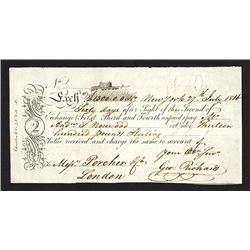 Exch.
New York 27th July 1816
Sixty days after Sight of this Second of
Exchange (First Third and Fourth unpaid) pay
Norwood or Order Thirteen
hundred Pounds Sterling
Value received and charge the same to account of
2
To
Messrs. Porcher & Co.
London
Your Ob. Serv.
Geo. Richards